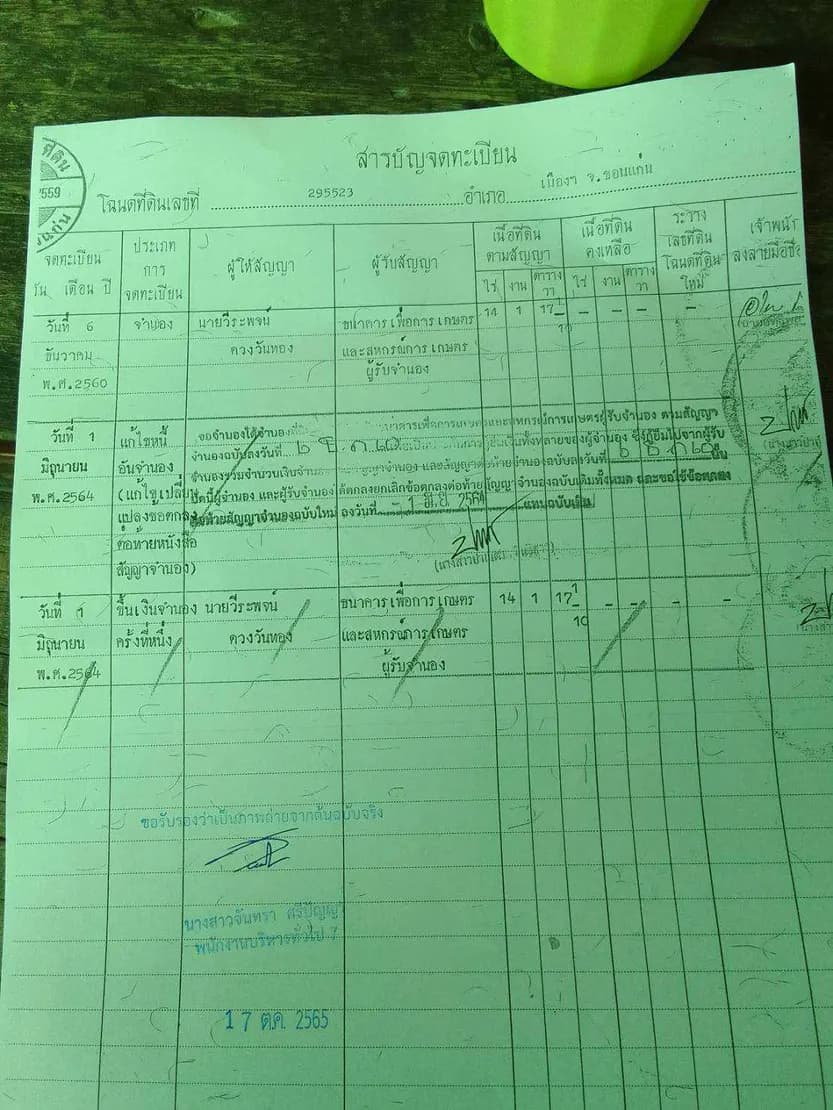 สารบัญจดทะเบียน
โฉนดที่ดินเลขที่ 295523 อำเภอ เมืองฯ จ.ขอนแก่น
2559
จดทะเบียน
วัน เดือน ปี
ประเภท
การ
จดทะเบียน
ผู้ให้สัญญา
ผู้รับสัญญา
เนื้อที่ดิน
ตามสัญญา
ไร่ งาน ตาราง
วา
เนื้อที่ดิน
คงเหลือ
ไร่ งาน ตาราง
วา
ระวาง
เลขที่ดิน
โฉนดที่ดิน
ใหม่
เจ้าพนัก
ลงลายมือชื่อ
วันที่ 6 จำนอง นายวีระพจน์ ธนาคารเพื่อการเกษตร 14 1 17 1/10 - - - -
ธันวาคม ดวงวันทอง และสหกรณ์การเกษตร
พ.ศ.2560 ผู้รับจำนอง
วันที่ 1
มิถุนายน
พ.ศ.2564
แก้ไขหนี้
อันจำนอง
(แก้ไขเปลี่ยน
แปลงข้อตกลง
ต่อท้ายหนังสือ
สัญญาจำนอง)
เพื่อการเกษตรและสหกรณ์การเกษตรผู้รับจำนอง ตามสัญญา
จำนองฉบับลงวันที่ ทั้งหลายของผู้จำนอง ซึ่งกู้ยืมไปจากผู้รับ
จำนองรวมจำนวนเงินจำนอง และสัญญาต่อท้าย ฉบับลงวันที่
ผู้จำนอง และผู้รับจำนองได้ตกลงยกเลิกข้อตกลงต่อท้ายสัญญาจำนองฉบับเดิมทั้งหมด และขอใช้ข้อตกลง
ต่อท้ายสัญญาจำนองฉบับใหม่ ลงวันที่ 1 มิ.ย. 2564 แทนฉบับเดิม
วันที่ 1 ขึ้นเงินจำนอง นายวีระพจน์ ธนาคารเพื่อการเกษตร 14 1 17 1/10 - - - -
มิถุนายน ครั้งที่หนึ่ง ดวงวันทอง และสหกรณ์การเกษตร
พ.ศ.2564 ผู้รับจำนอง
ขอรับรองว่าเป็นภาพถ่ายจากต้นฉบับจริง
นางสาวจันทรา ศรีปัญญา
พนักงานบริหารทั่วไป 7
17 ต.ค. 2565